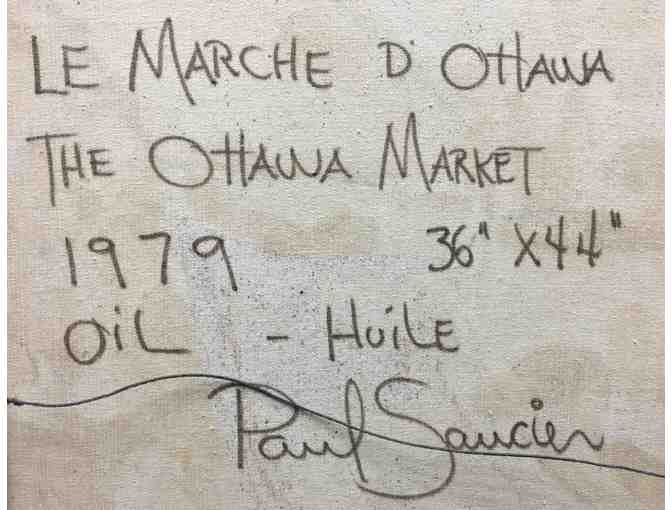 LE MARCHE D' OTTAWA
THE OTTAWA MARKET
1979 36" X44"
OiL - HuiLE
Paul Saucier